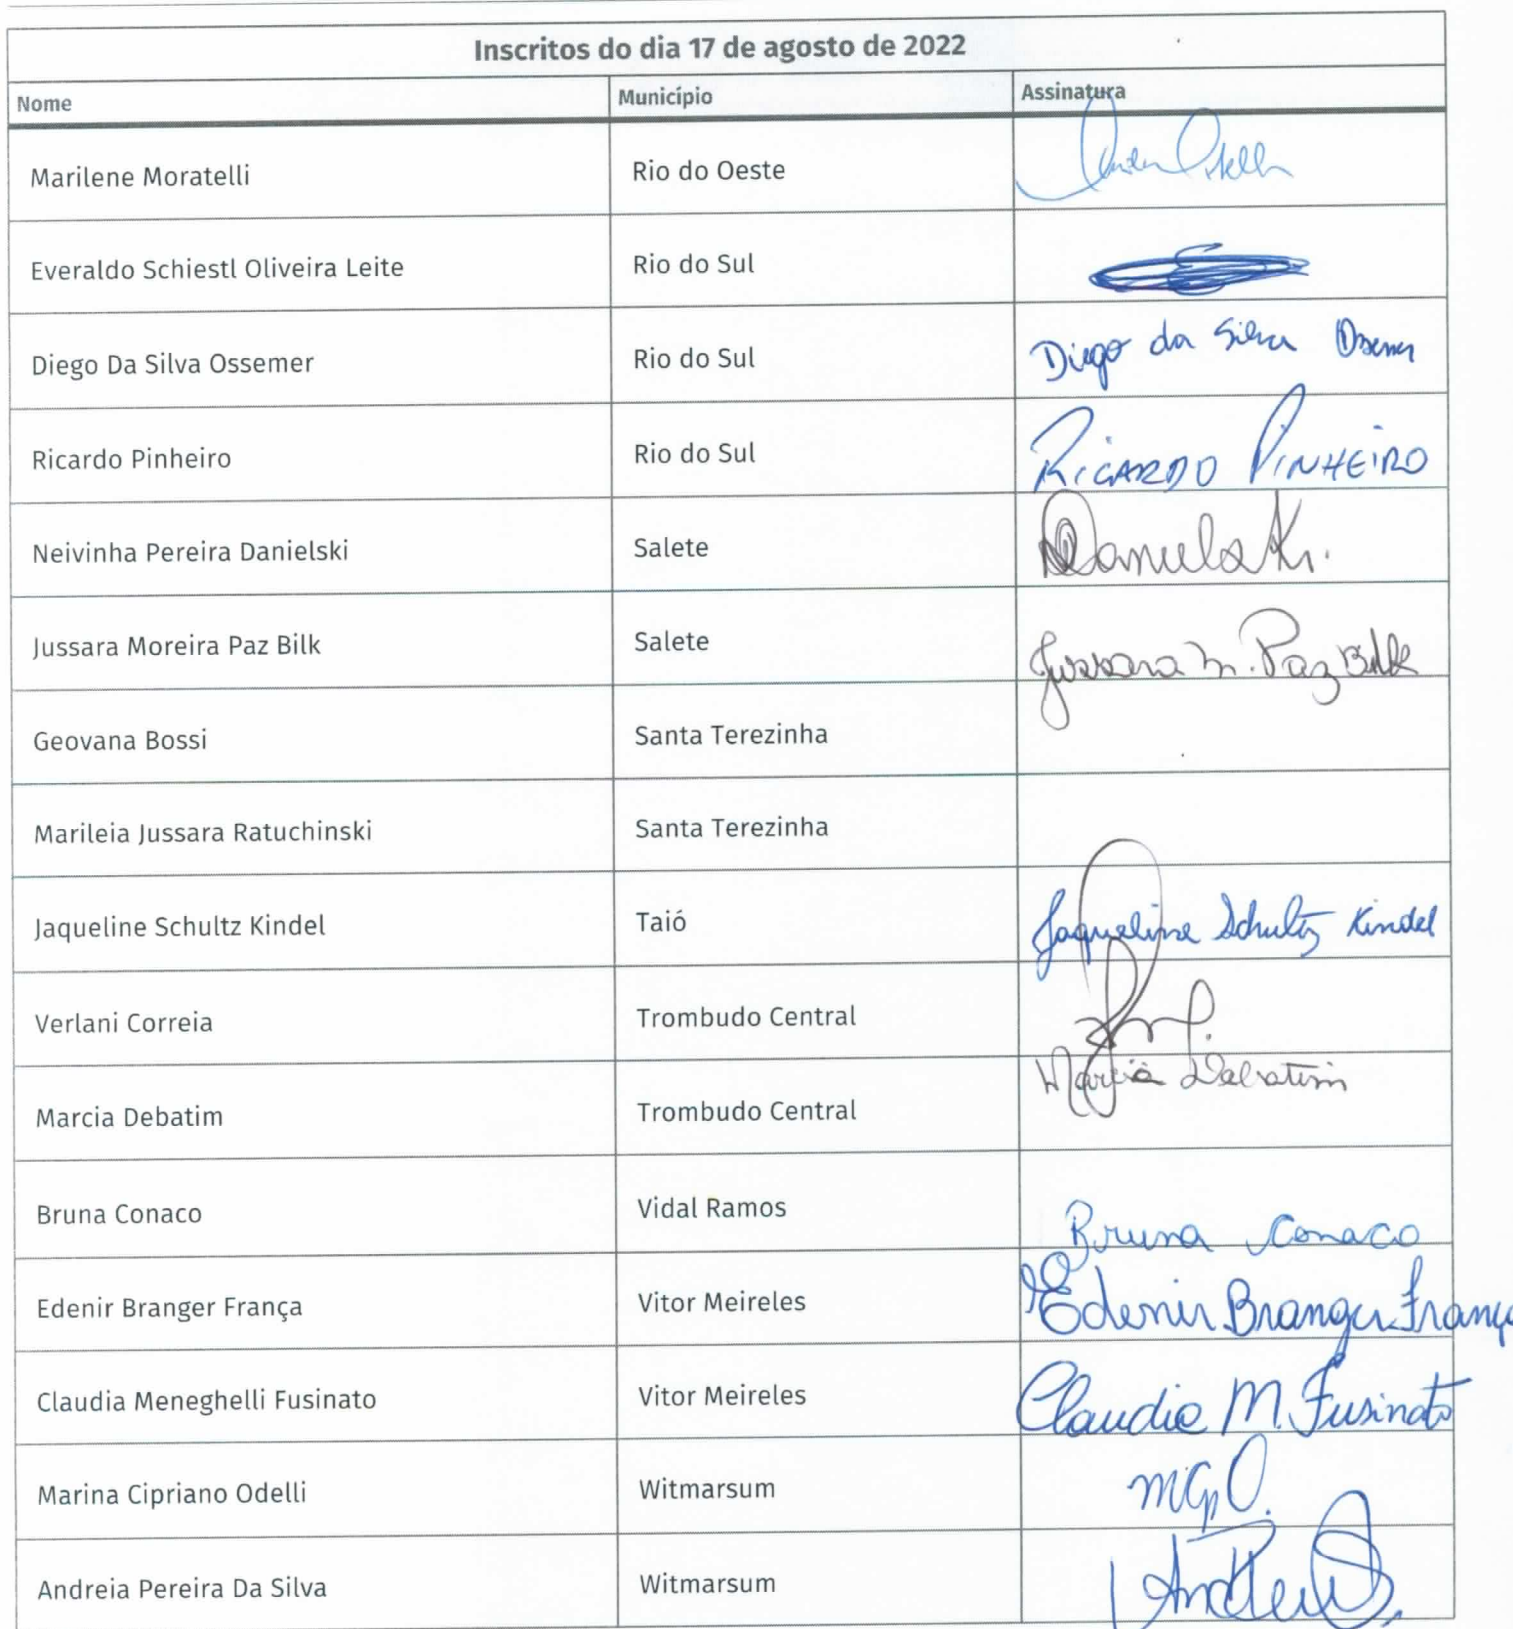 Inscritos do dia 17 de agosto de 2022
Nome Município Assinatura
Marilene Moratelli Rio do Oeste
Everaldo Schiestl Oliveira Leite Rio do Sul
Diego Da Silva Ossemer Rio do Sul Diego da Silva Ossemer
Ricardo Pinheiro Rio do Sul RICARDO PINHEIRO
Neivinha Pereira Danielski Salete
Jussara Moreira Paz Bilk Salete Jussara M. Paz Bilk
Geovana Bossi Santa Terezinha
Marileia Jussara Ratuchinski Santa Terezinha
Jaqueline Schultz Kindel Taió Jaqueline Schultz Kindel
Verlani Correia Trombudo Central
Marcia Debatim Trombudo Central Marcia Debatim
Bruna Conaco Vidal Ramos Bruna Conaco
Edenir Branger França Vitor Meireles Edenir Branger França
Claudia Meneghelli Fusinato Vitor Meireles Claudia M. Fusinato
Marina Cipriano Odelli Witmarsum
Andreia Pereira Da Silva Witmarsum